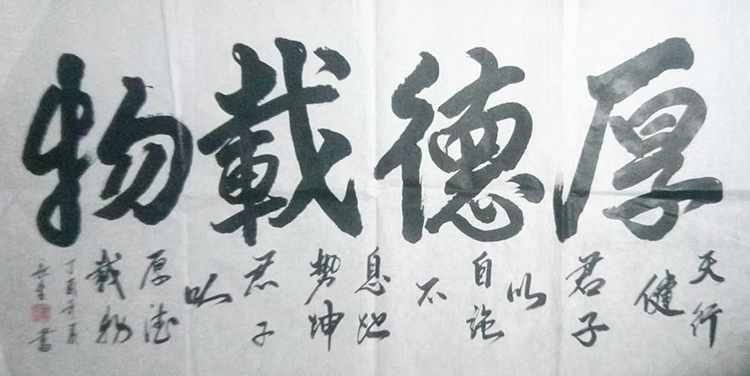 厚德載物
天行
健
君子
以
自强
不
息地
勢坤
君子
以
厚德
載物
丁酉夏
書